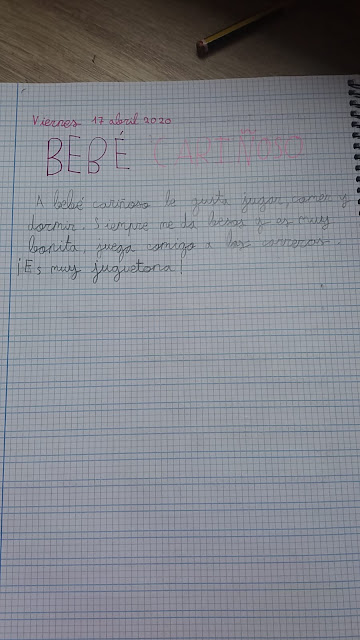 Viernes 17 abril 2020
BEBÉ CARIÑOSO
A bebé cariñoso le gusta jugar, comer y
dormir. Siempre me da besos y es muy
bonita, juega comigo a las carreras.
¡Es muy juguetona!